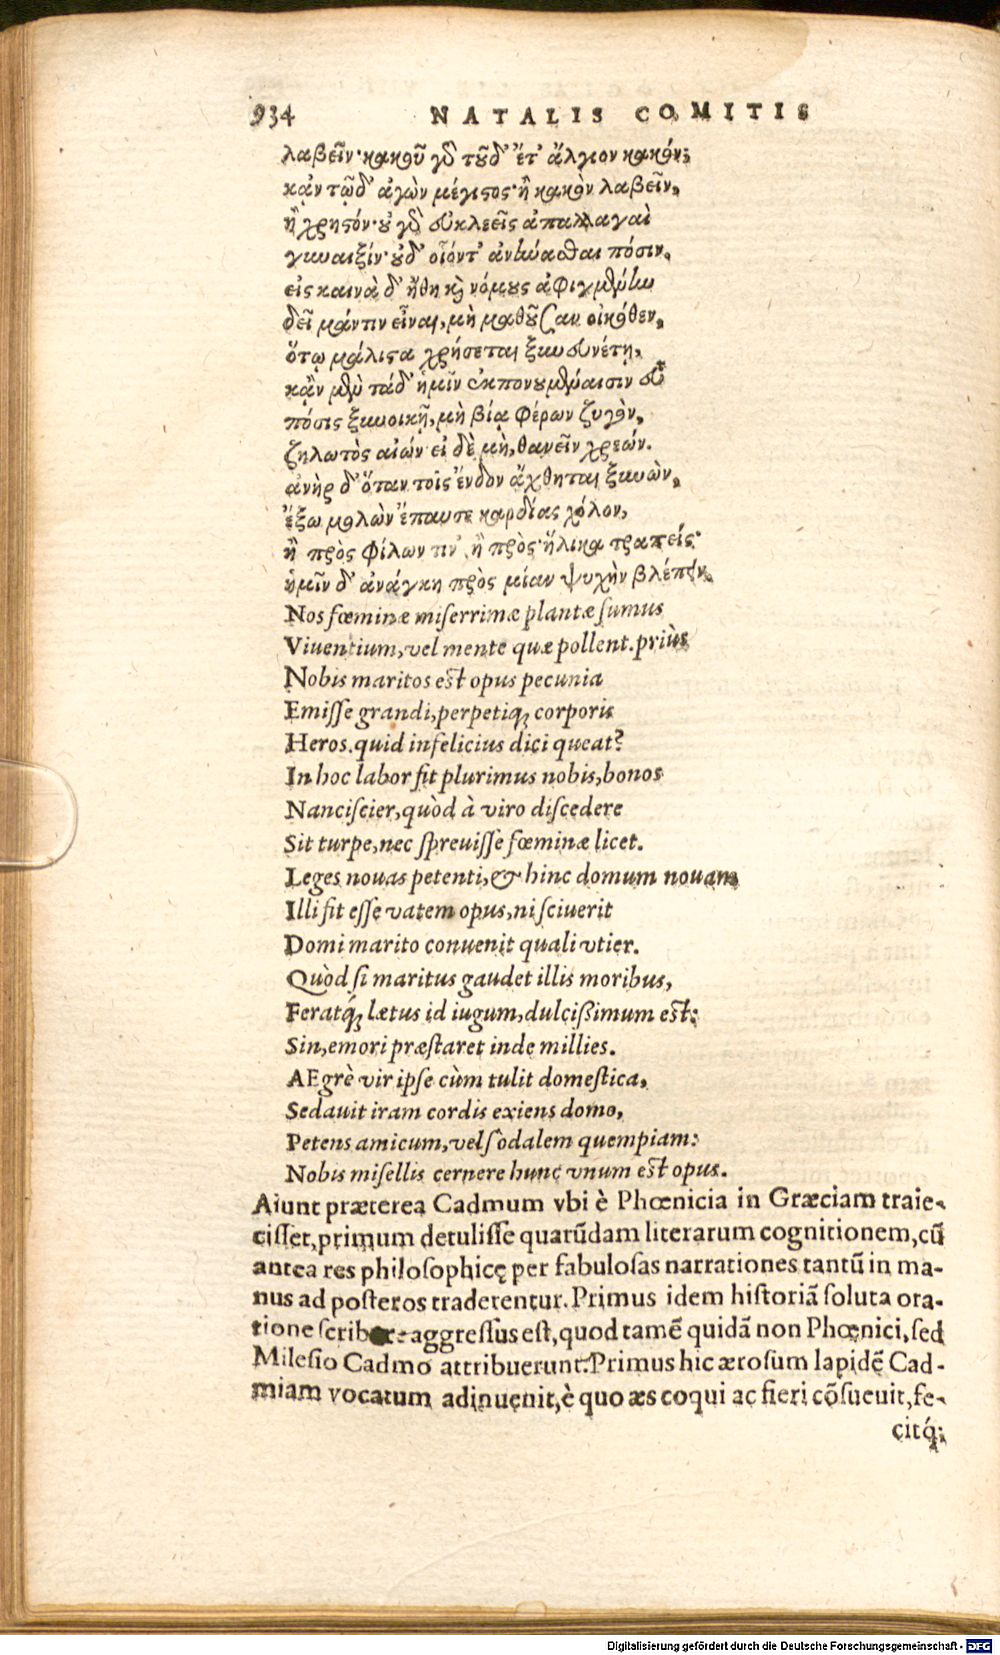 934 NATALIS COMITIS
λαβεῖν· κακοῦ γὸ τοῦδ' ἔτ' ἄλγιον κακόν·
κἀν τῷδ' ἀγὼν μέγιστος· ἢ κακὸν λαβεῖν,
ἢ χρηστόν· οὐ γὸ εὐκλεεῖς ἀπαλλαγαὶ
γυναιξίν· οὐδ' οἷόντ' ἀνήνασθαι πόσιν.
εἰς καινὰ δ' ἤθη καὶ νόμους ἀφιγμένην
δεῖ μάντιν εἶναι, μὴ μαθοῦσαν οἴκοθεν,
ὅτῳ μάλιστα χρήσεται ξυνευνέτῃ,
κἂν μὲν τάδ' ἡμῖν ἐκπονουμέναισιν εὖ
πόσις ξυνοικῇ, μὴ βίᾳ φέρων ζυγὸν,
ζηλωτὸς αἰών· εἰ δὲ μὴ, θανεῖν χρεών.
ἀνὴρ δ' ὅταν τοῖς ἔνδον ἄχθηται ξυνὼν,
ἔξω μολὼν ἔπαυσε καρδίας χόλον,
ἢ πρὸς φίλων τιν' ἢ πρὸς ἥλικα τραπείς·
ἡμῖν δ' ἀνάγκη πρὸς μίαν ψυχὴν βλέπειν.
Nos fœminæ miſerrimæ plantæ ſumus
Viuentium, vel mente quæ pollent. priùs
Nobis maritos eſt opus pecunia
Emiſſe grandi, perpetiq; corporis
Heros. quid infelicius dici queat?
In hoc labor fit plurimus nobis, bonos
Nanciſcier, quòd à viro diſcedere
Sit turpe, nec ſpreuiſſe fœminæ licet.
Leges nouas petenti, & hinc domum nouam
Illi fit eſſe vatem opus, ni ſciuerit
Domi marito conuenit quali vtier.
Quòd ſi maritus gaudet illis moribus,
Feratq́; lætus id iugum, dulcißimum eſt:
Sin, emori præſtaret inde millies.
AEgrè vir ipſe cùm tulit domeſtica,
Sedauit iram cordis exiens domo,
Petens amicum, vel ſodalem quempiam:
Nobis miſellis cernere hunc vnum eſt opus.
Aiunt præterea Cadmum vbi è Phœnicia in Græciam traie-
ciſſet, primum detuliſſe quarūdam literarum cognitionem, cū
antea res philoſophicę per fabuloſas narrationes tantū in ma-
nus ad poſteros traderentur. Primus idem hiſtoriā ſoluta ora-
tione ſcribere aggreſſus eſt, quod tamē quidā non Phœnici, ſed
Mileſio Cadmo attribuerunt. Primus hic æroſum lapidē Cad-
miam vocatum adinuenit, è quo æs coqui ac fieri cōſueuit, fe-
citq́;
Digitalisierung gefördert durch die Deutsche Forschungsgemeinschaft - DFG